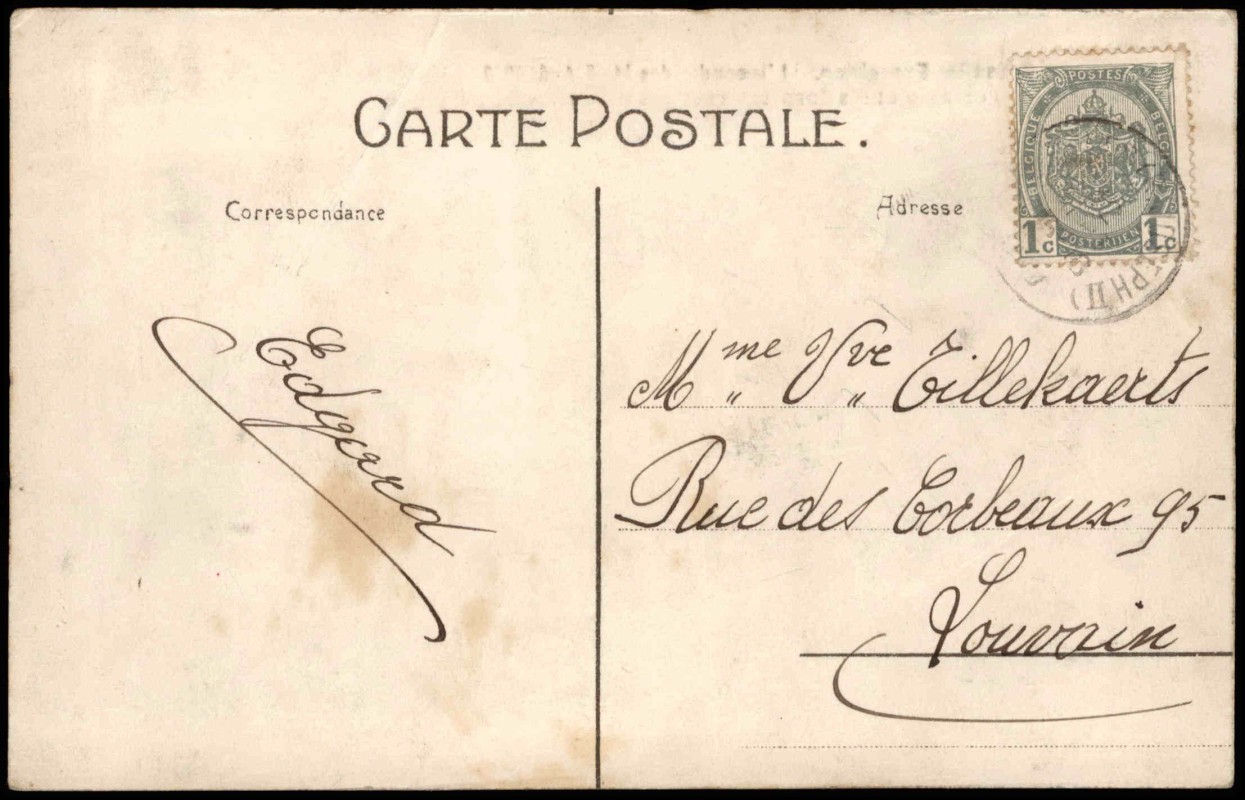 CARTE POSTALE.
Correspondance
Adresse
POSTES
BELGIQUE
BELGIË
1c
POSTERIJEN
1c
Edgard
Mme Vve Tillekaerts
Rue des Corbeaux 95
Louvain